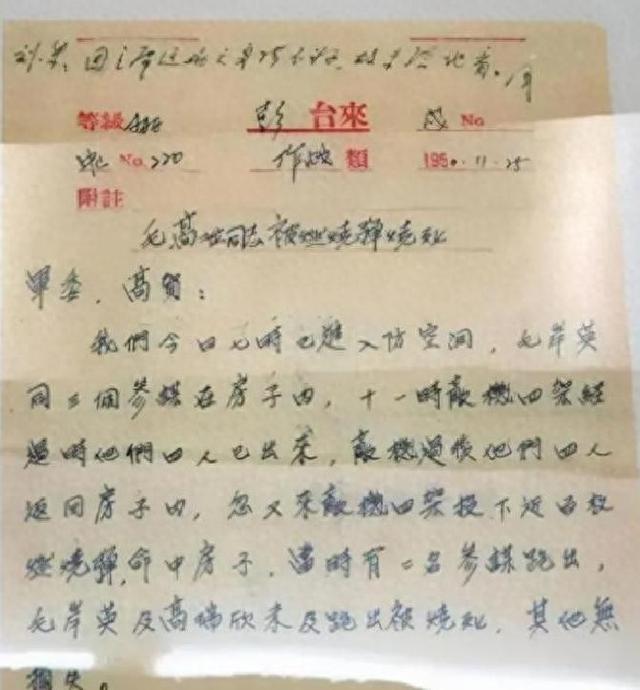 等級 彭 台來 No
No. 220 作戰 類 1950·11·25
附註
毛高二同志被燃燒彈燒死
軍委、高賀：
我們今日七時已進入防空洞，毛岸英
同三個參謀在房子內，十一時敵機四架經
過時他們四人已出來，敵機過後他們四人
返回房子內，忽又來敵機四架投下近百枚
燃燒彈，命中房子，當時有二名參謀跑出，
毛岸英及高瑞欣未及跑出被燒死，其他無
損失。